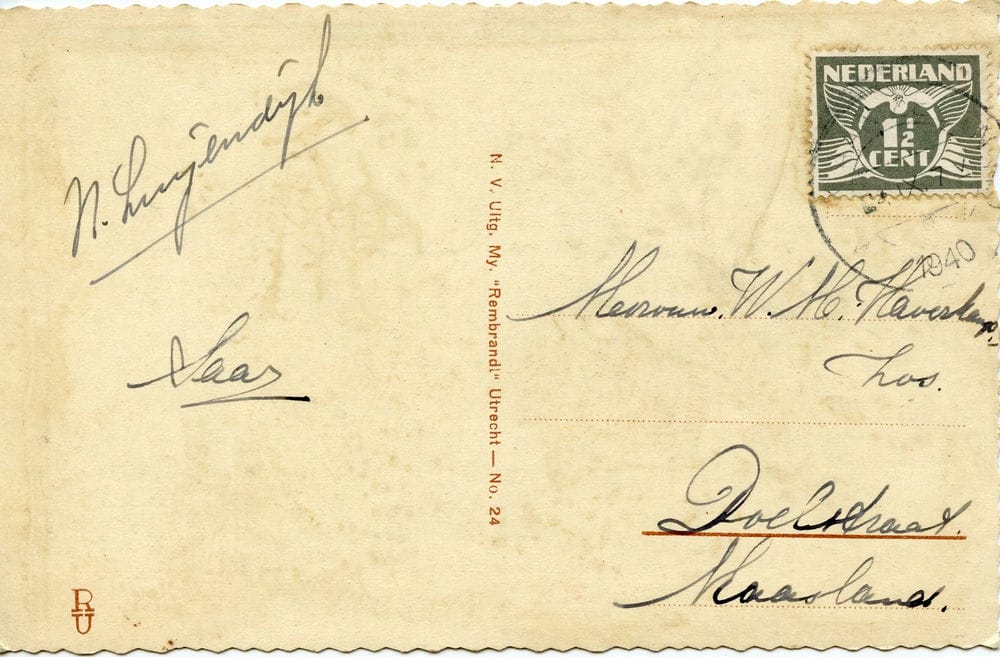 N. Luijendijk
Saar
N. V. Uitg. My. "Rembrandt" Utrecht — No. 24
R
U
NEDERLAND
1½
CENT
1940
Mevrouw. W. M. Haverkamp.
Doelstraat.
Maasland.